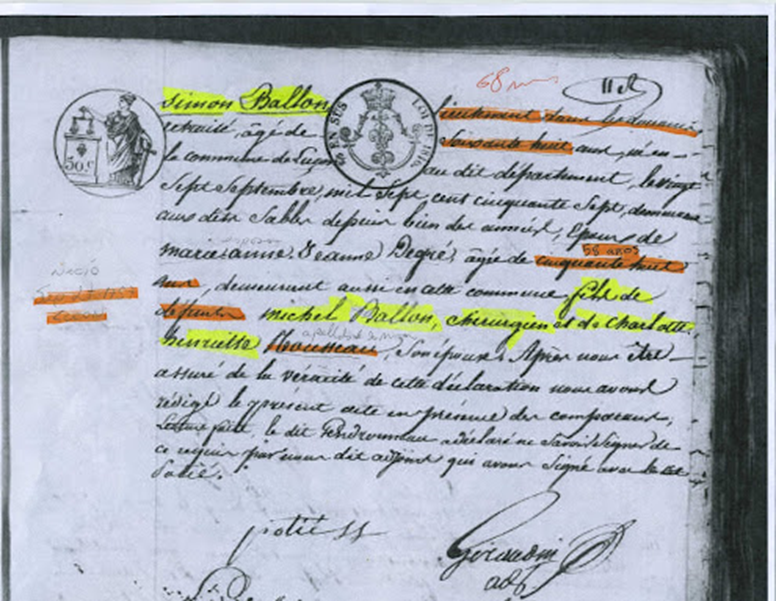 68
Simon Ballon
EN SUS
LOI DE 1816
lieutenant dans les douanes
retraité, âgé de
soixante huit ans, né en
50.c
la commune de Luçon
au dit département, le vingt
Sept Septembre, mil Sept cent cinquante Sept, demeurant
aux dits Sables depuis bien des années, Epoux de
marie anne Jeanne Degré, âgée de cinquante huit
58 años
ans, demeurant aussi en cette commune, fils de
NACIÓ
défunts michel Ballon, chirurgien et de Charlotte
apellido
henriette Rousseau, son épouse. Après nous être
assuré de la véracité de cette déclaration nous avons
rédigé le présent acte en présence des comparans,
Lecture faite, le dit a déclaré ne Savoir Signer de
ce requis par nous dit adjoint qui avons Signé avec le dit
Potié.
potié
Giraudin
adj